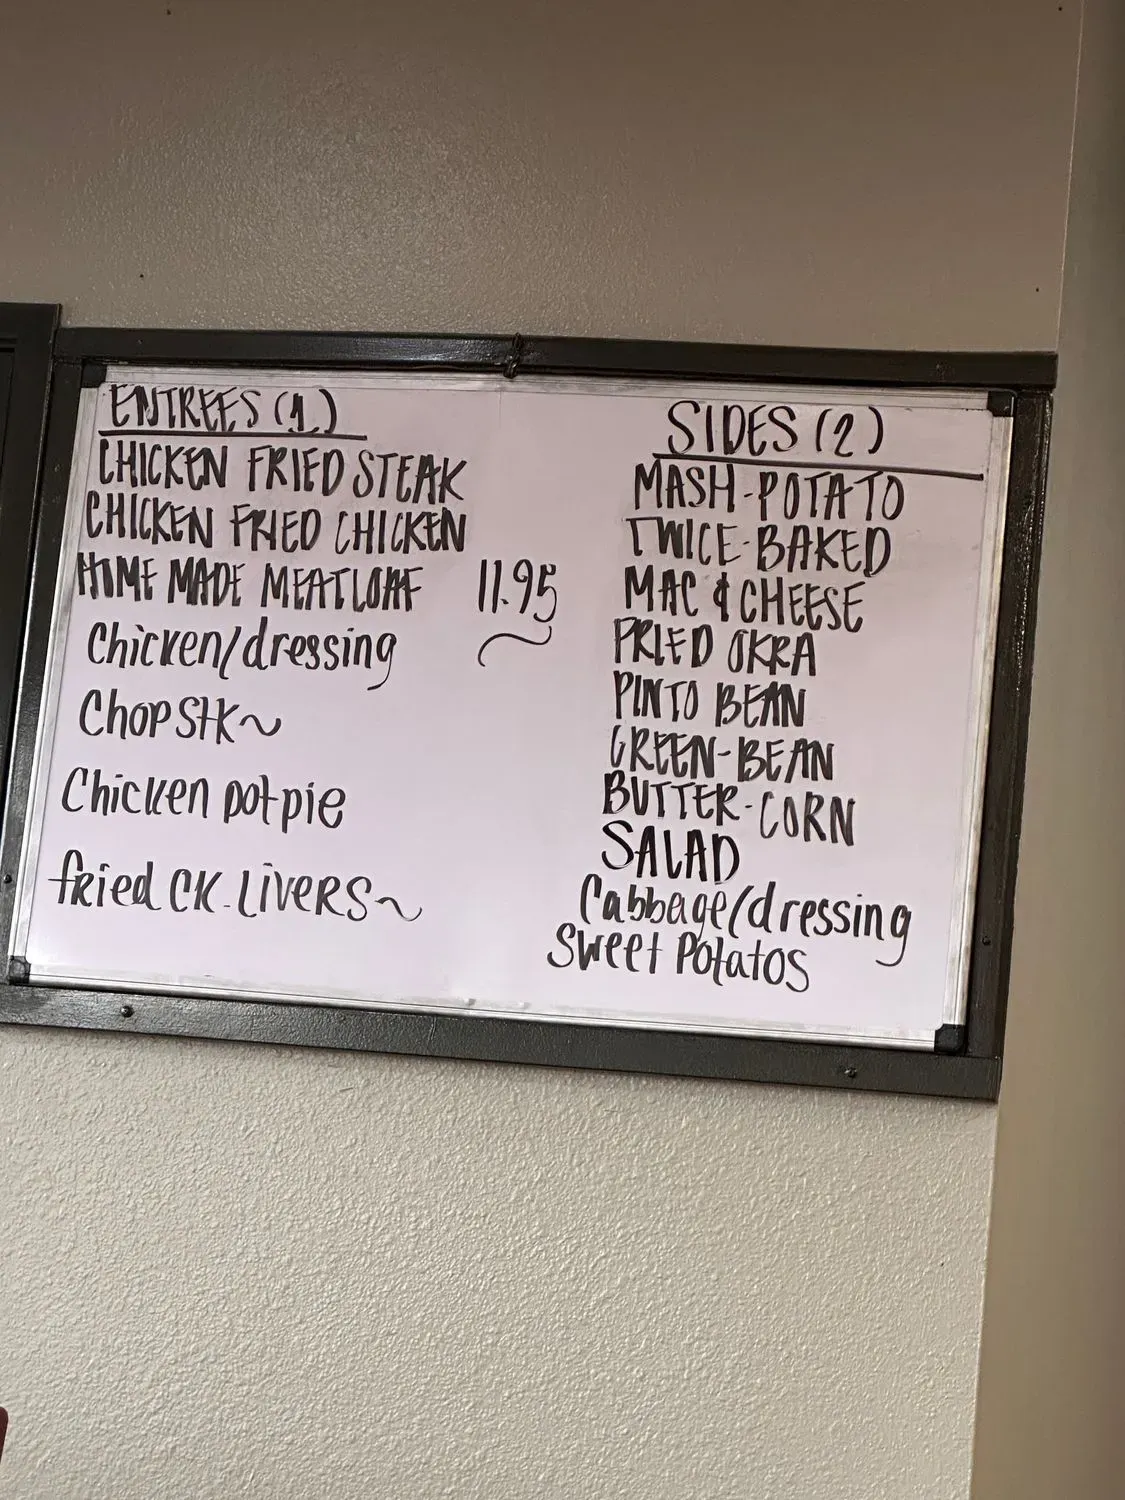 ENTREES (1)
CHICKEN FRIED STEAK
CHICKEN FRIED CHICKEN
HOME MADE MEATLOAF 11.95
Chicken/dressing
Chop Stk~
Chicken potpie
fried CK. LIVERS~
SIDES (2)
MASH-POTATO
TWICE-BAKED
MAC & CHEESE
FRIED OKRA
PINTO BEAN
GREEN-BEAN
BUTTER-CORN
SALAD
Cabbage/dressing
Sweet Potatos